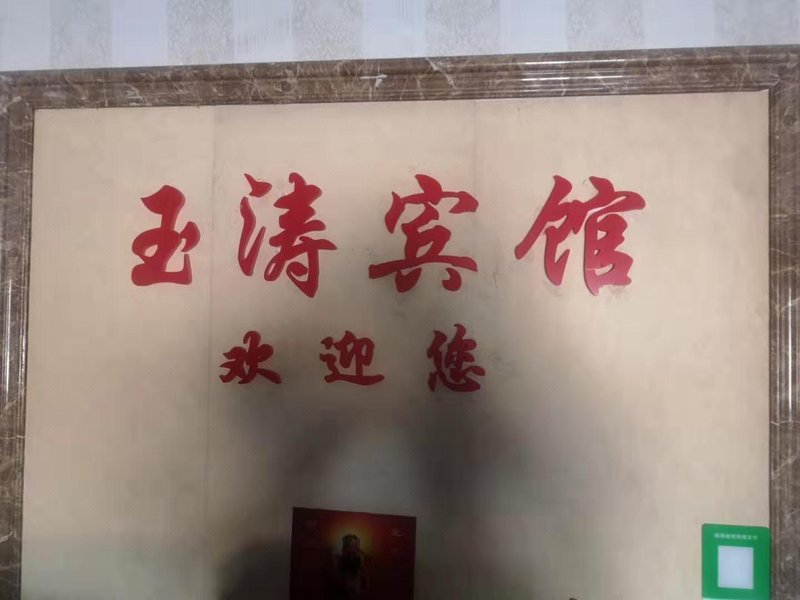 玉涛宾馆
欢迎您